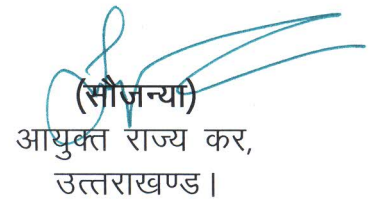 (सौजन्या)
आयुक्त राज्य कर,
उत्तराखण्ड।